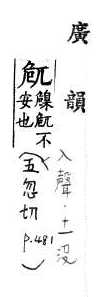 廣韻
入聲.十一沒
卼
臲卼不
安也
(五忽切
P.481)